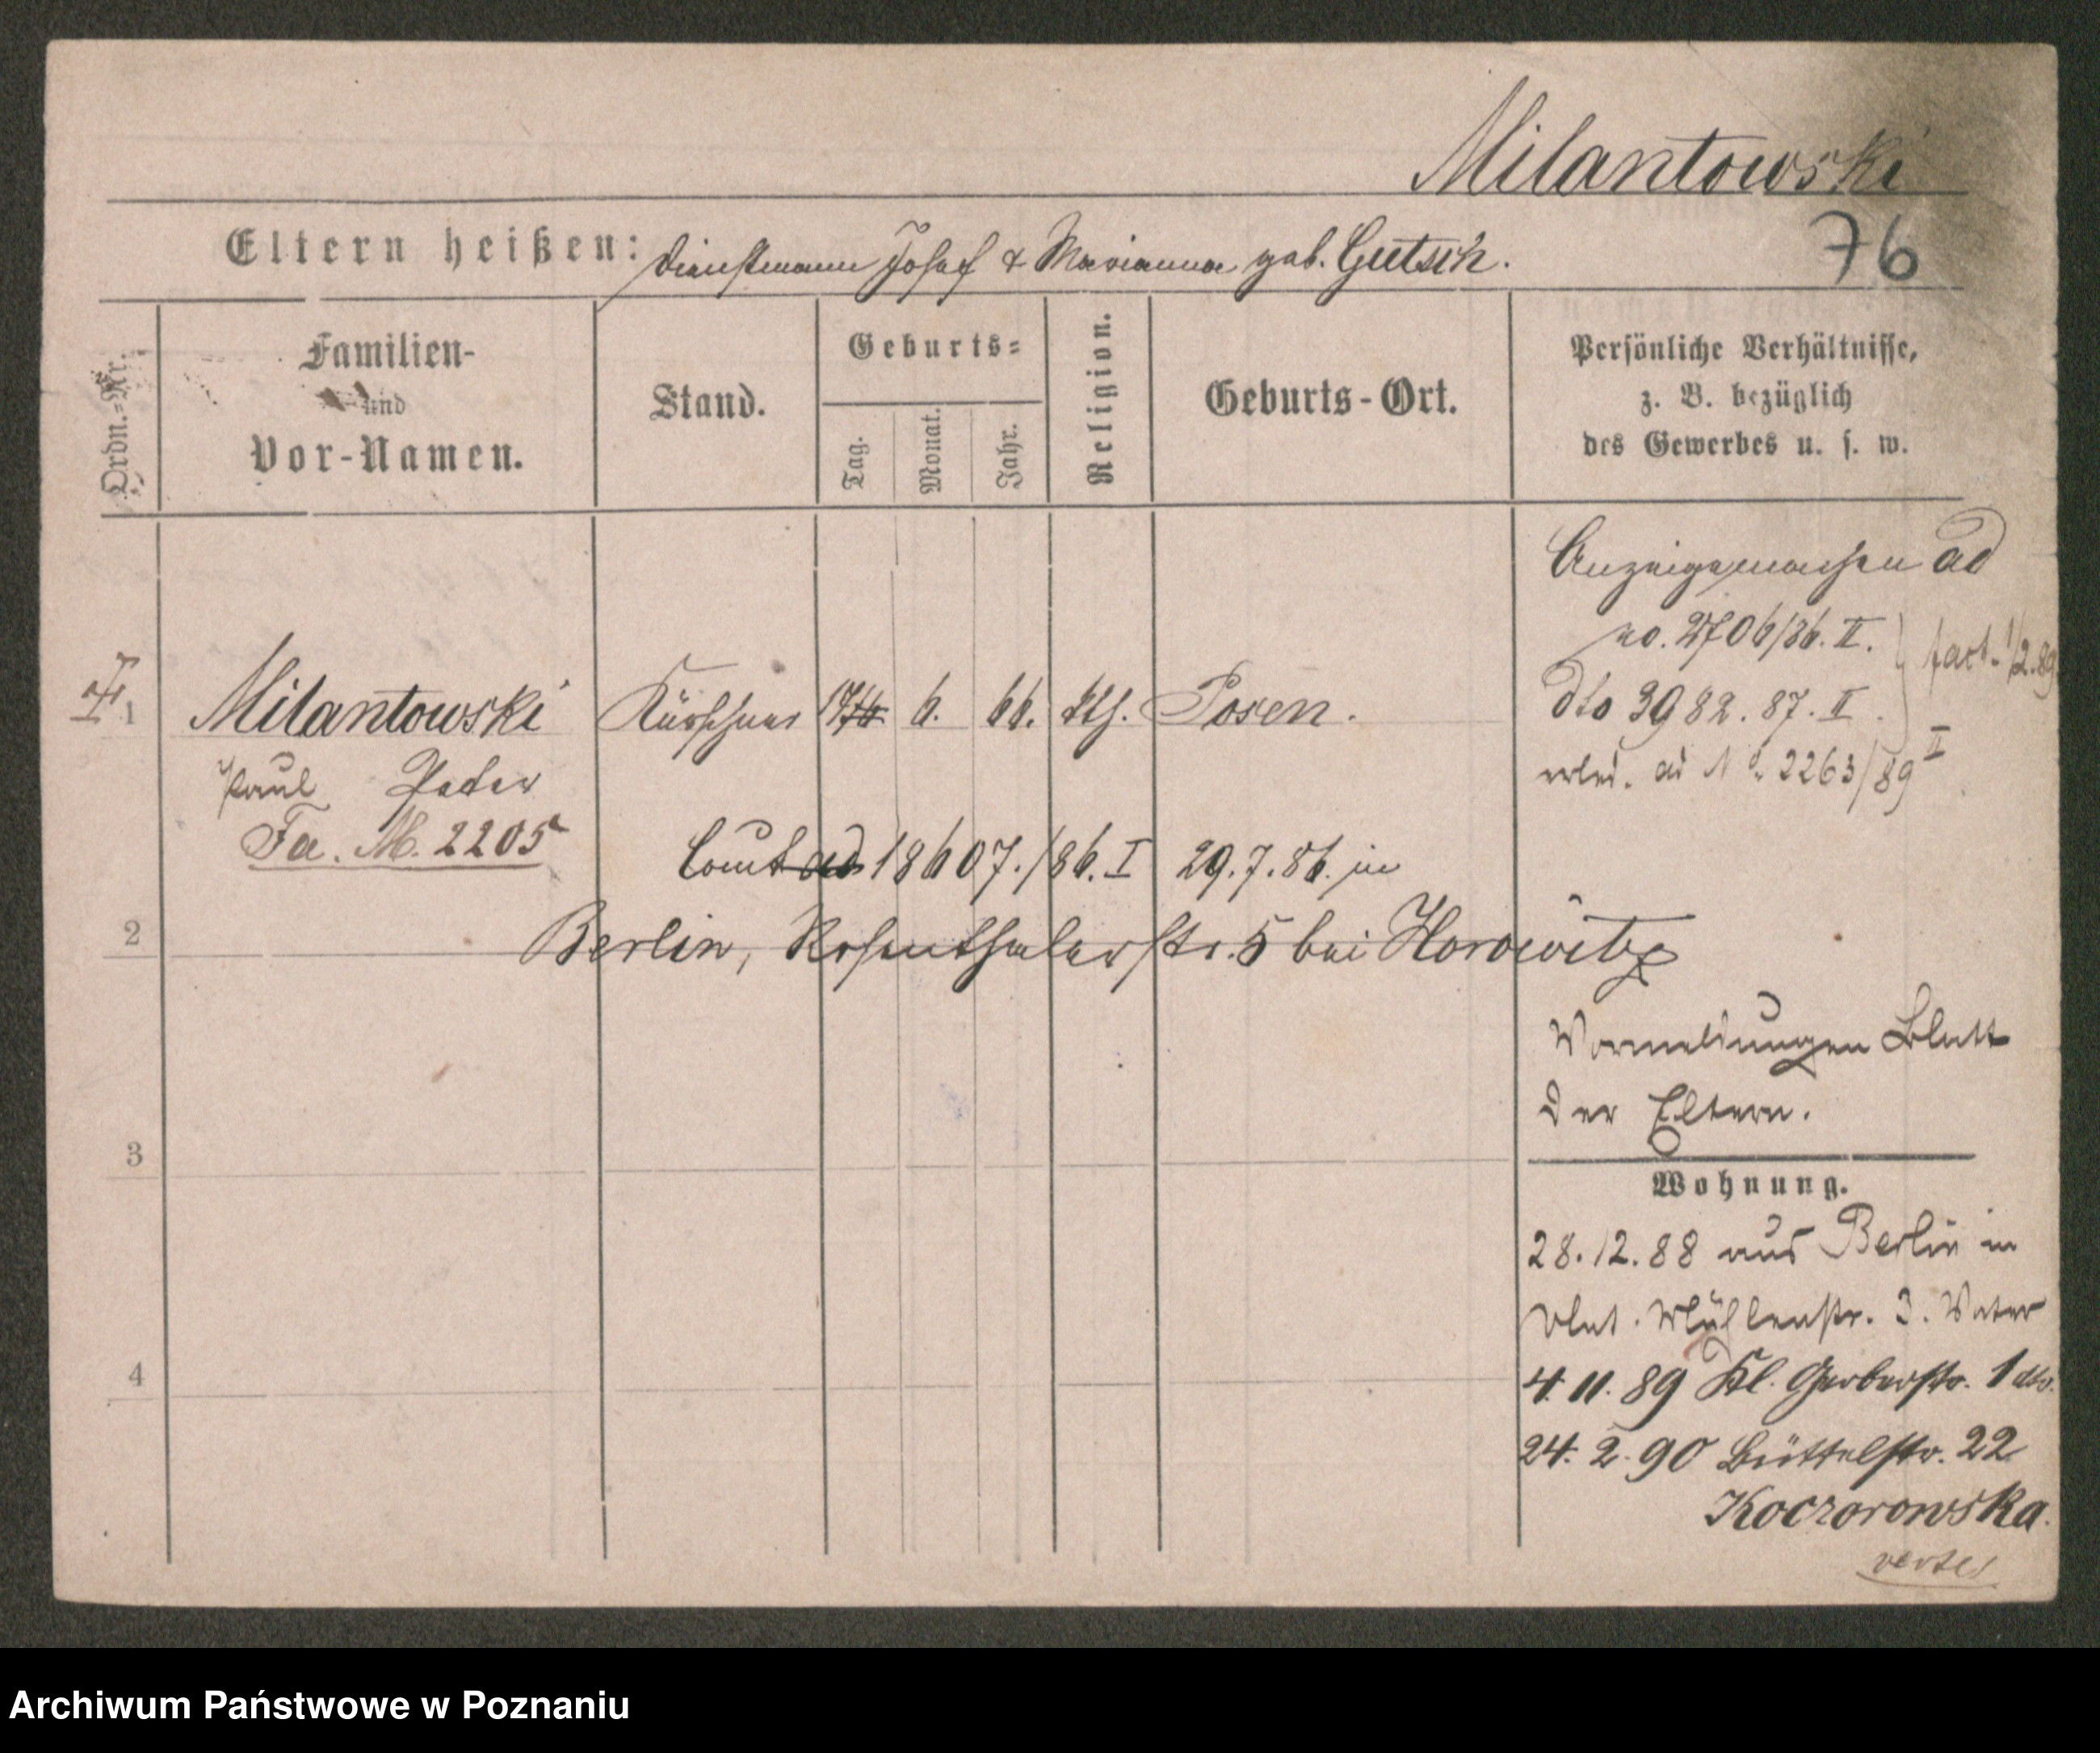 Milantowski
76
Eltern heißen: Dienstmann Josef & Marianna geb. Gutsch.
Ordn.-Nr.
Familien-
und
Vor-Namen.
Stand.
Geburts-
Tag.
Monat.
Jahr.
Religion.
Geburts-Ort.
Persönliche Verhältnisse,
z. B. bezüglich
des Gewerbes u. s. w.
ad
no. 2706/86. II.
dto 3982. 87. II.
erled. ad No. 2263/89 I
fact. 1/2.89
1 Milantowski Kürschner 6. 66. kth. Posen.
Paul Peter
Fa. M. 2205
ad 18607./86. I 29.7.86. in
2
Berlin, Rosenthalerstr. 5 bei Horowitz
Vormeldungen Blatt
der Eltern.
3
Wohnung.
28.12.88 aus Berlin in
Mühlenstr. 3. Vater
4
4. 11. 89 Kl. Gerberstr. 1 dto.
24. 2. 90 Büttelstr. 22
Koczorowska.
verte!
Archiwum Państwowe w Poznaniu